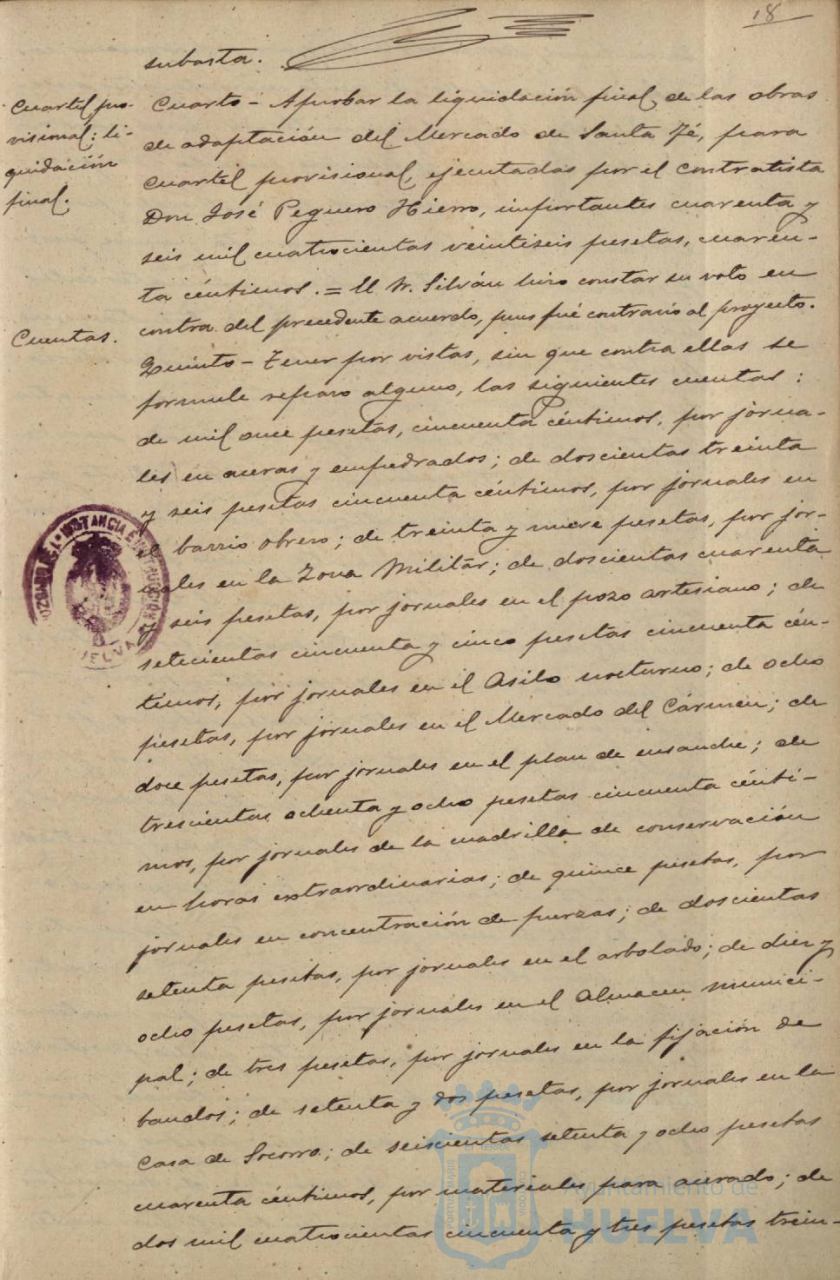 18
subasta.
Cuartel pro-
visional: li-
quidación
final.
Cuarto - Aprobar la liquidación final de las obras
de adaptación del Mercado de Santa Fé, para
cuartel provisional, ejecutadas por el contratista
Don José Peguero Hierro, importantes cuarenta y
seis mil cuatrocientas veintiseis pesetas, cuaren-
ta céntimos. = El Sr. Silván hizo constar su voto en
contra del precedente acuerdo, pues fué contrario al proyecto.
Cuentas.
Quinto - Tener por vistas, sin que contra ellas se
formule reparo alguno, las siguientes cuentas:
de mil once pesetas, cincuenta céntimos, por jorna-
les en aceras y empedrados; de doscientas treinta
y seis pesetas cincuenta céntimos, por jornales en
el barrio obrero; de treinta y nueve pesetas, por jor-
nales en la Zona Militar; de doscientas cuarenta
y seis pesetas, por jornales en el pozo artesiano; de
setecientas cincuenta y cinco pesetas cincuenta cén-
timos, por jornales en el Asilo nocturno; de ocho
pesetas, por jornales en el Mercado del Cármen; de
doce pesetas, por jornales en el plan de ensanche; de
trescientas ochenta y ocho pesetas cincuenta cénti-
mos, por jornales de la cuadrilla de conservación
en horas extraordinarias; de quince pesetas, por
jornales en concentración de fuerzas; de doscientas
setenta pesetas, por jornales en el arbolado; de diez y
ocho pesetas, por jornales en el Almacen munici-
pal; de tres pesetas, por jornales en la fijación de
bandos; de setenta y dos pesetas, por jornales en la
Casa de Socorro; de seiscientas setenta y ocho pesetas
cuarenta céntimos, por materiales para acerado; de
dos mil cuatrocientas cincuenta y tres pesetas trein-
HUELVA
Ayuntamiento de
HUELVA